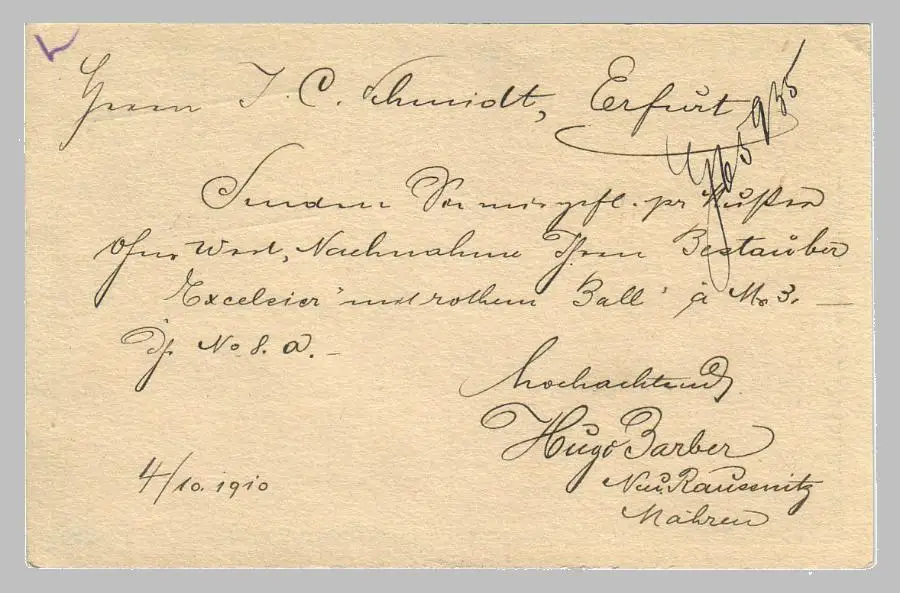 Herrn J. C. Schmidt, Erfurt
Senden Sie mir gefl. pr Muster
ohne Wert, Nachnahme Ihren Bestäuber
"Excelsior" mit rothem Ball" à Mk 3.—
No 8. a.—
Hochachtend
Hugo Barber
Neu Rausnitz
Mähren
4/10. 1910